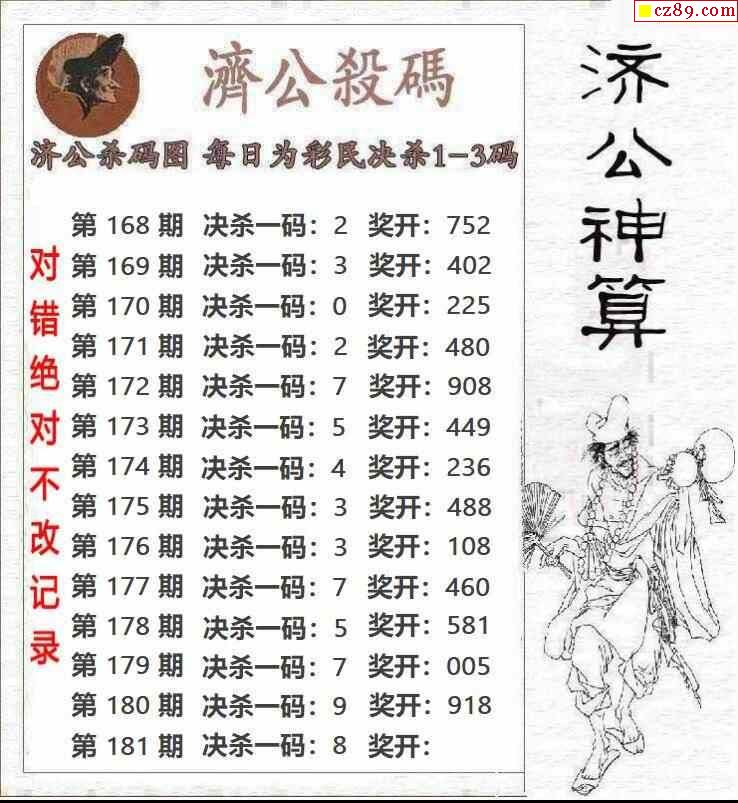 cz89.com
濟公殺碼
济公杀码图 每日为彩民决杀1-3码
第 168 期 决杀一码：2 奖开：752
第 169 期 决杀一码：3 奖开：402
第 170 期 决杀一码：0 奖开：225
第 171 期 决杀一码：2 奖开：480
第 172 期 决杀一码：7 奖开：908
第 173 期 决杀一码：5 奖开：449
第 174 期 决杀一码：4 奖开：236
第 175 期 决杀一码：3 奖开：488
第 176 期 决杀一码：3 奖开：108
第 177 期 决杀一码：7 奖开：460
第 178 期 决杀一码：5 奖开：581
第 179 期 决杀一码：7 奖开：005
第 180 期 决杀一码：9 奖开：918
第 181 期 决杀一码：8 奖开：
对错绝对不改记录
济公神算